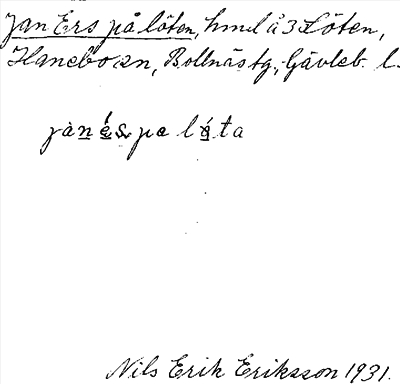 Jan Ers på löten, hmd å 3 Löten,
Hanebo sn, Bollnäs tg, Gävleb l.
jàn és pa lóta
Nils Erik Eriksson 1931.